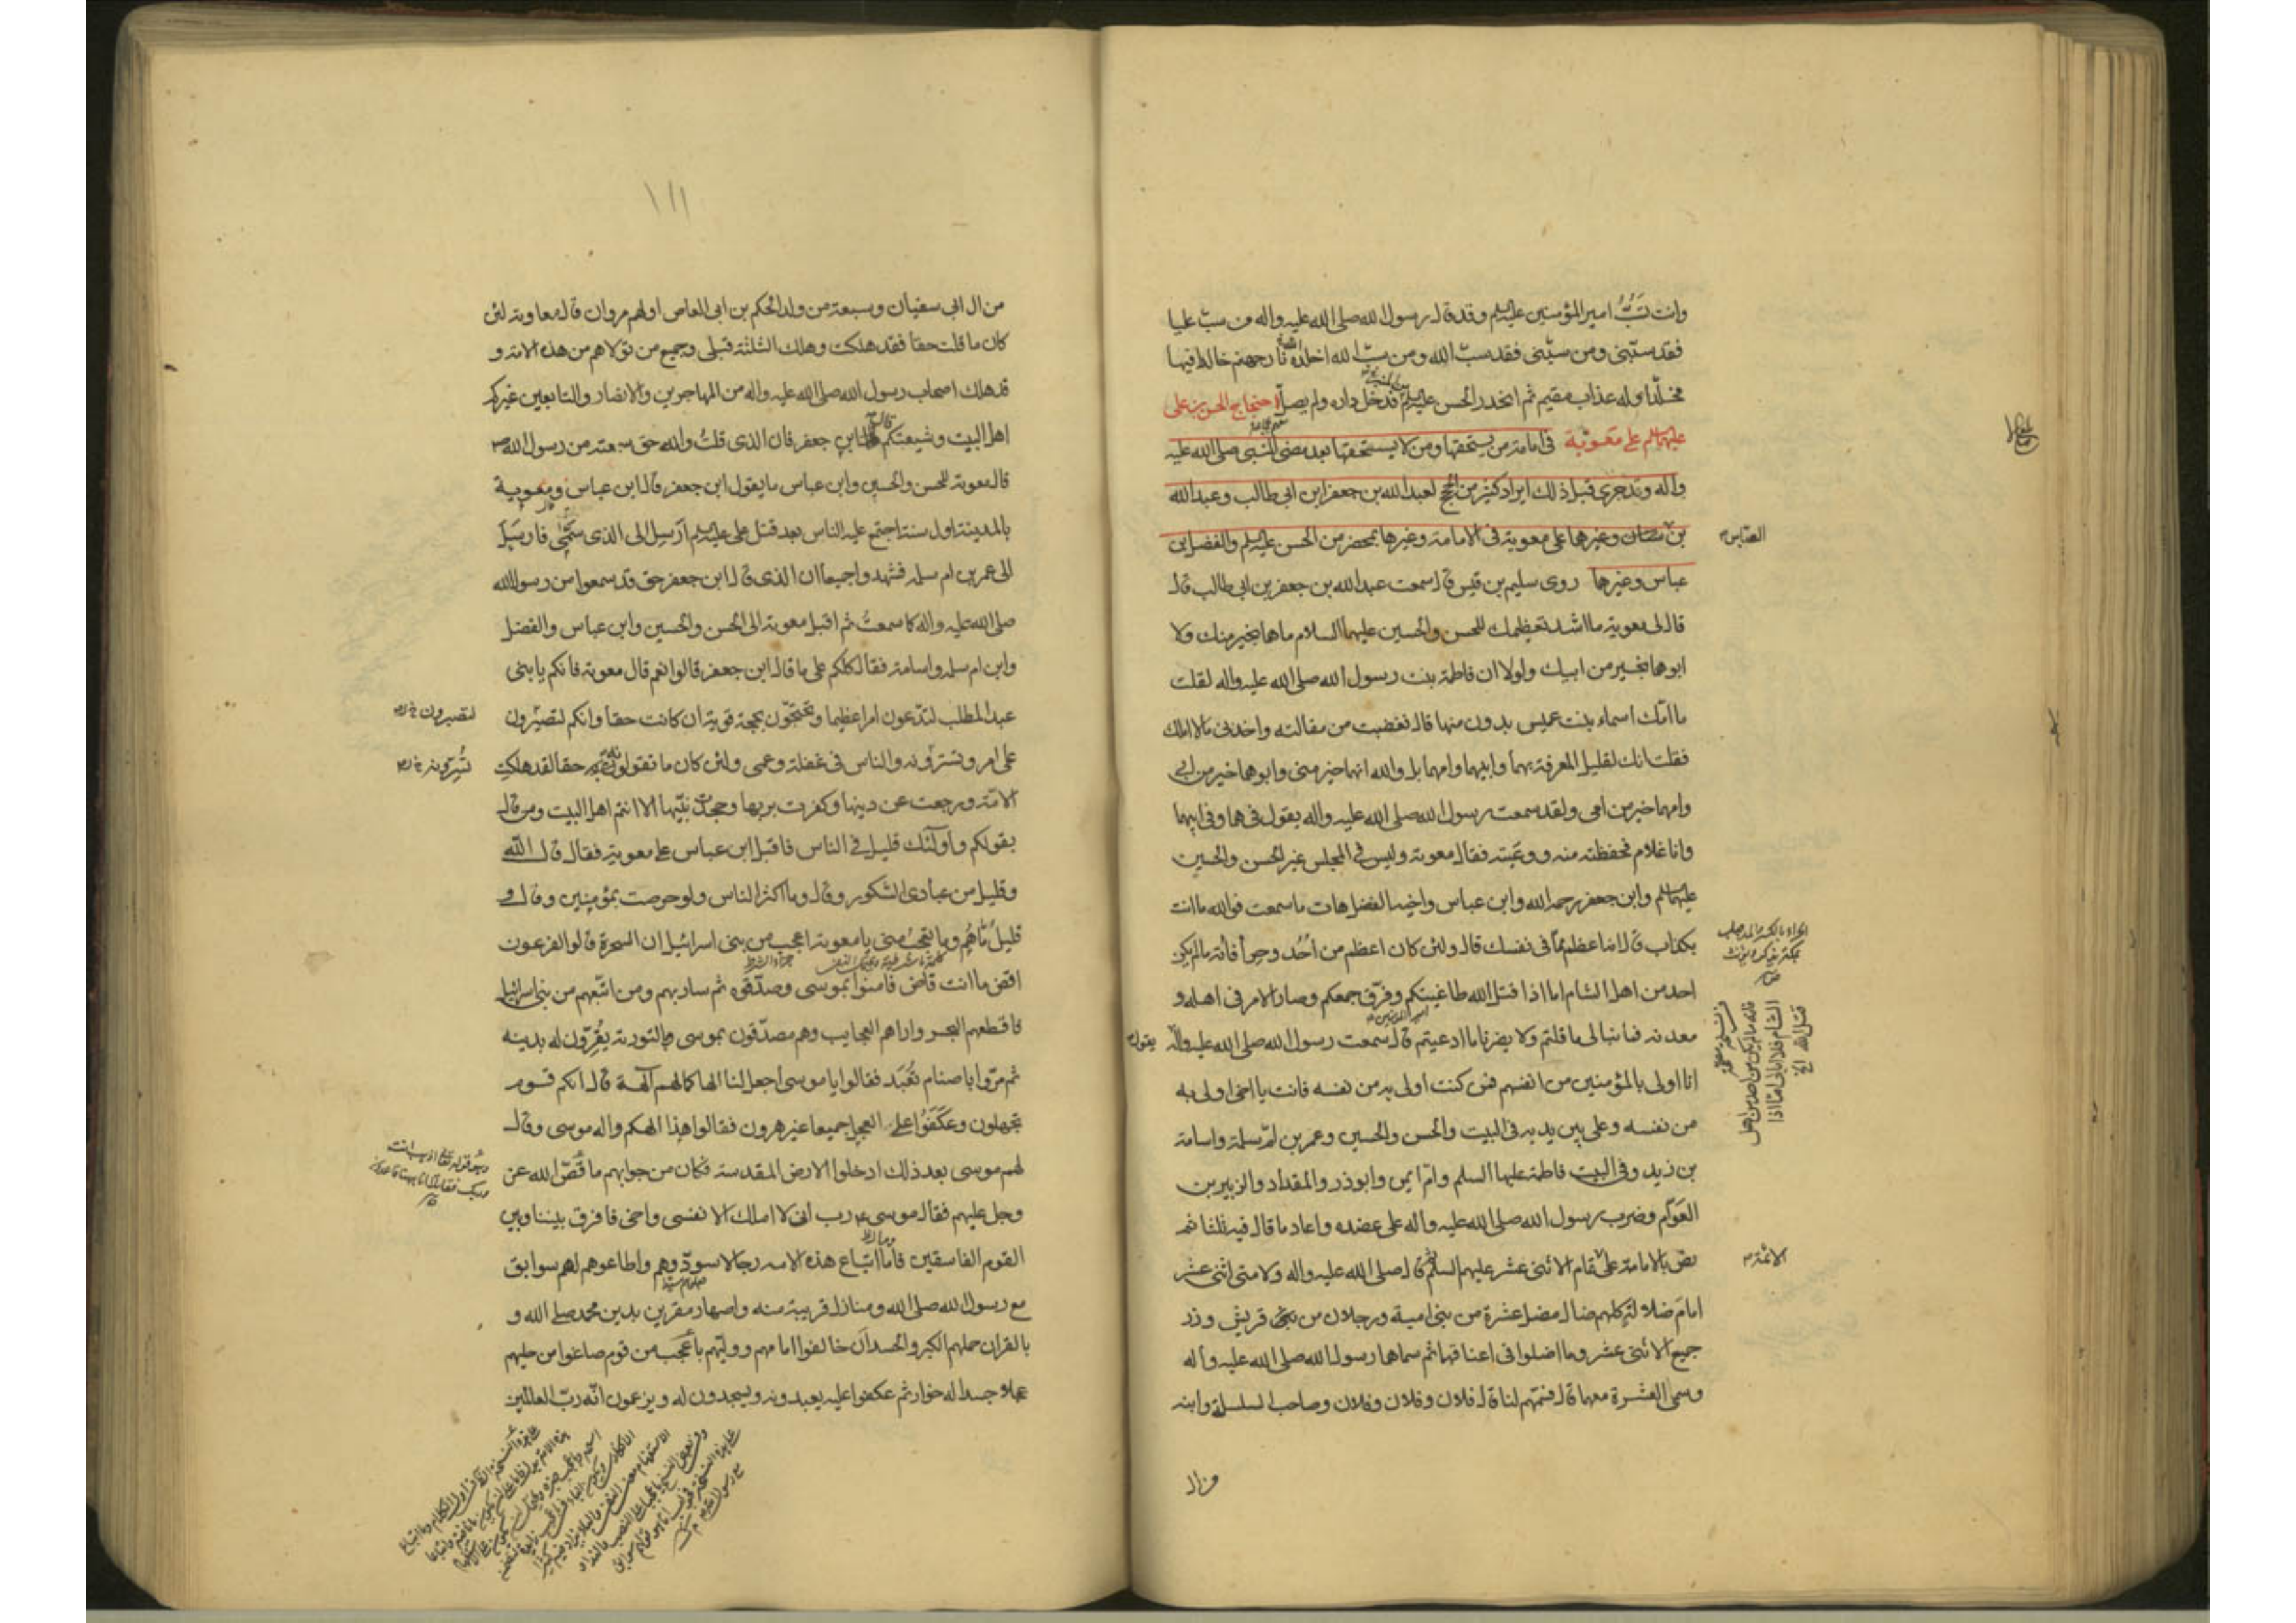 وانت تسُبُّ امير المؤمنين عليه السلم وقد قال رسول الله صلى الله عليه واله من سبّ عليا
فقد سبّنى ومن سبّنى فقد سبّ الله ومن سبّ الله ادخله الله نار جهنم خالدا فيها
مخلّدا وله عذاب مقيم ثم انحدر الحسن عليه السلم فدخل داره ولم يصلّ احتجاج الحسن بن على
عليهما السلم على معوية فى امامة من يستحقها ومن لا يستحقها بعد مضى النبى صلى الله عليه
واله وقد جرى قبل ذلك ايراد كثير من الحجج لعبد الله بن جعفر ابن ابى طالب وعبد الله
بن عباس وغيرها على معوية فى الامامة وغيرها بمحضر من الحسن عليه السلم والفضل ابن
العباس
عباس وغيرها روى سليم بن قيس قال سمعت عبد الله بن جعفر بن ابى طالب قال
قال لى معوية ما اشد تعظيمك للحسن والحسين عليهما السلام ما هما بخير منك ولا
ابوهما بخير من ابيك ولولا ان فاطمة بنت رسول الله صلى الله عليه واله لقلت
ما امّك اسماء بنت عميس بدون منها قال فغضبت من مقالته واخذنى ما لا املك
فقلت انك لقليل المعرفة بهما وابيهما وامهما بل والله انهما خير منى وابوهما خير من ابى
وامهما خير من امى ولقد سمعت رسول الله صلى الله عليه واله يقول فيهما وفى ابيهما
وانا غلام فحفظته منه ووعيته فقال معوية وليس فى المجلس غير الحسن والحسين
عليهما السلم وابن جعفر رحمه الله وابن عباس واخيه الفضل هات ما سمعت فوالله ما انت
بكذاب قال انه اعظم مما فى نفسك قال ولئن كان اعظم من اُحُد وحِراً فانه ما لم يكن
احد من اهل الشام اما اذا قتل الله طاغيتكم وفرّق جمعكم وصار الامر فى اهله و
معدنه فما نبالى ما قلتم ولا يضرنا ما ادعيتم قال سمعت رسول الله صلى الله عليه واله يقول
انا اولى بالمؤمنين من انفسهم فمن كنت اولى به من نفسه فانت يا اخى اولى به
من نفسه وعلى بين يديه فى البيت والحسن والحسين وعمر بن امّ سلمة واسامة
بن زيد وفى البيت فاطمة عليها السلم وامّ ايمن وابوذر والمقداد والزبير بن
العوّام وضرب رسول الله صلى الله عليه واله على عضده واعاد ما قال فيه ثلثا ثم
نصّ بالامامة على تمام الاثنى عشر عليهم السلم ثم قال صلى الله عليه واله ولامتى اثنى عشر
الائمة
امام ضلالة كلهم ضال مضل عشرة من بنى امية ورجلان من قريش وزر
جميع الاثنى عشر وما اضلوا فى اعناقهما ثم سماهما رسول الله صلى الله عليه واله
وسمى العشرة معهما قال فسمّهم لنا قال فلان وفلان وفلان وصاحب السلسلة وابنه
من ال
١١١
من ال ابى سفيان وسبعة من ولد الحكم بن ابى العاص اولهم مروان قال معاوية لئن
كان ما قلت حقا فقد هلكت وهلك الثلثة قبلى وجميع من تولاهم من هذه الامة و
قد هلك اصحاب رسول الله صلى الله عليه واله من المهاجرين والانصار والتابعين غيركم
اهل البيت وشيعتكم قال ابن جعفر فان الذى قلتُ والله حق سمعته من رسول الله ص
قال معوية للحسن والحسين وابن عباس ما يقول ابن جعفر قال ابن عباس ومعوية
بالمدينة اول سنة اجتمع عليه الناس بعد قتل على عليه السلم ارسل الى الذى سمّى فارسل
الى عمر بن ام سلمه فشهدوا جميعا ان الذى قال ابن جعفر حق قد سمعوا من رسول الله
صلى الله عليه واله كما سمعت ثم اقبل معوية الى الحسن والحسين وابن عباس والفضل
وابن ام سلمه واسامة فقال كلكم على ما قال ابن جعفر قالوا نعم قال معوية فانكم يا بنى
عبد المطلب لتدّعون امرا عظيما وتحتجّون بحجة قوية ان كانت حقا وانكم لتصبرون
على امر وتسترونه والناس فى غفلة وعمى ولئن كان ما تقولون حقا لقد هلكت
الامّة ورجعت عن دينها وكفرت بربها وجحدت نبيّها الا انتم اهل البيت ومن قال
بقولكم واولئك قليل فى الناس فاقبل ابن عباس على معوية فقال قال الله
وقليل من عبادى الشكور وقال وما اكثر الناس ولو حرصت بمؤمنين وقال
قليلٌ مّا هُم وما تتعجب منى يا معوية اعجب من بنى اسرائيل ان السحرة قالوا لفرعون
اقض ما انت قاض فامنوا بموسى وصدّقوه ثم سار بهم ومن اتبعهم من بنى اسرائيل
فاقطعهم البحر واراهم العجايب وهم مصدّقون بموسى والتورية يُقِرّون له بدينه
ثم مرّوا باصنام تُعبَد فقالوا يا موسى اجعل لنا الها كما لهم آلهة قال انكم قوم
تجهلون وعكفوا على العجل جميعا غير هرون فقالوا هذا الهكم واله موسى وقال
لهم موسى بعد ذلك ادخلوا الارض المقدسة فكان من جوابهم ما قصّ الله عز
وجل عليهم فقال موسى رب انى لا املك الا نفسى واخى فافرق بيننا وبين
القوم الفاسقين فما اتباع هذه الامه رجالا سوّدوهم واطاعوهم لهم سوابق
مع رسول الله صلى الله ومنازل قريبة منه واصهار مقرين بدين محمد صلى الله و
بالقران حملهم الكبر والحسد ان خالفوا امامهم ووليّهم باعجب من قوم صاغوا من حليهم
عجلا جسدا له خوار ثم عكفوا عليه يعبدونه ويسجدون له ويزعمون انّه ربّ العالمين